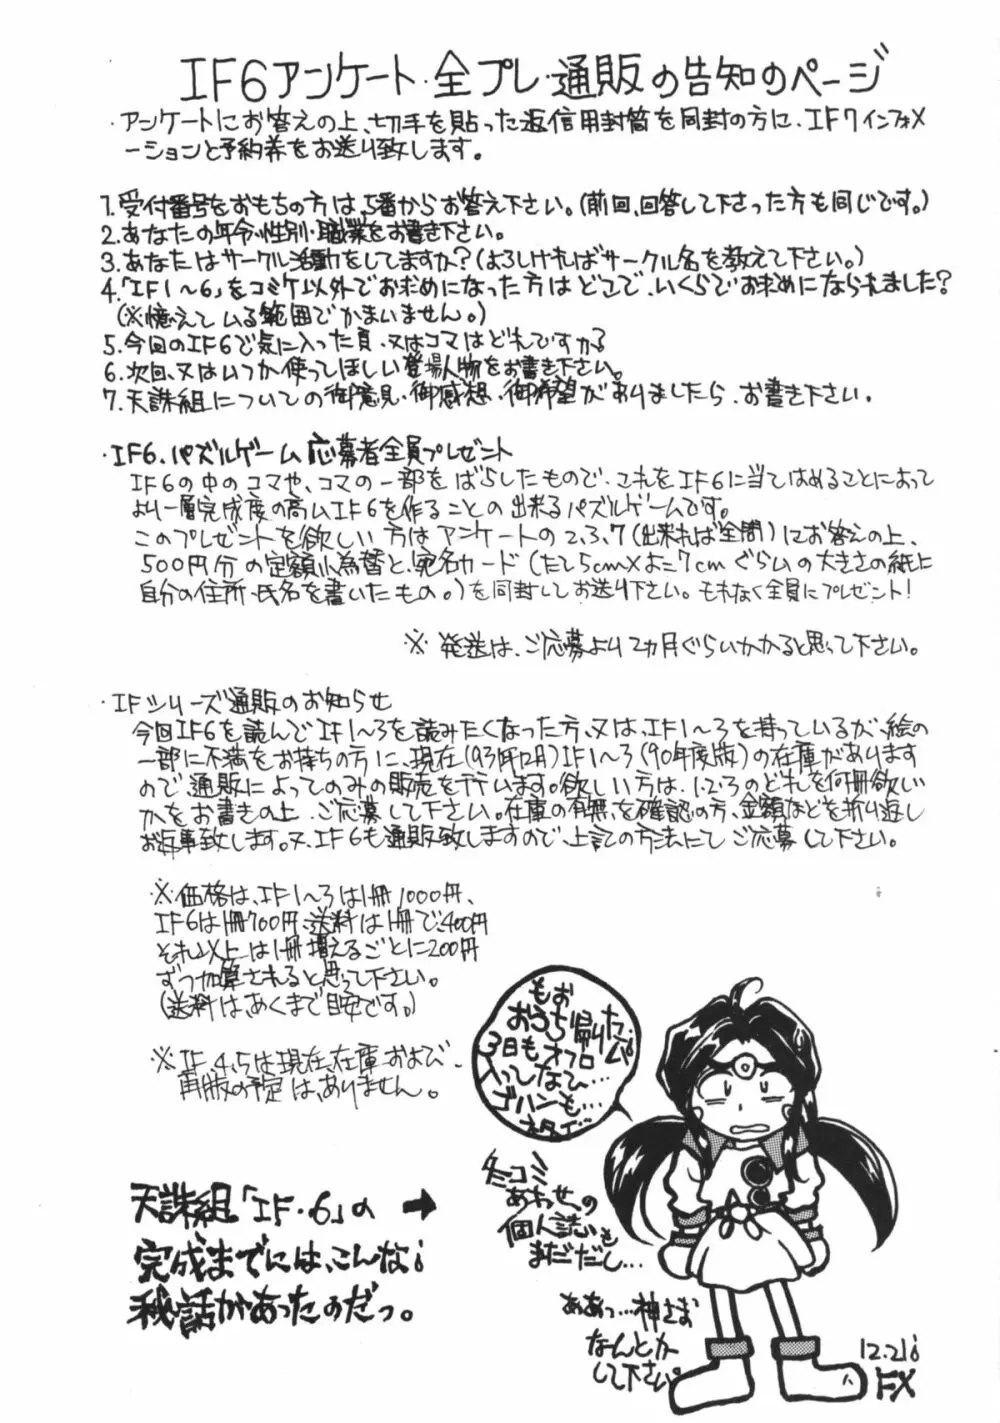 IF6アンケート・全プレ・通販の告知のページ
・アンケートにお答えの上、切手を貼った返信用封筒を同封の方に、IF7インフォメ
ーションと予約券をお送り致します。
1.受付番号をおもちの方は、5番からお答え下さい。(前回、回答して下さった方も同じです。)
2.あなたの年令・性別・職業をお書き下さい。
3.あなたはサークル活動をしてますか?(よろしければサークル名を教えて下さい。)
4.「IF1〜6」をコミケ以外でお求めになった方はどこで、いくらでお求めになられました?
(※憶えている範囲でかまいません。)
5.今回のIF6で気に入った頁、又はコマはどれですか?
6.次回、又はいつか使ってほしい登場人物をお書き下さい。
7.天誅組についての御意見・御感想・御希望がありましたら、お書き下さい。
・IF6.パズルゲーム応募者全員プレゼント
IF6の中のコマや、コマの一部をばらしたもので、これをIF6に当てはめることによって
より一層完成度の高いIF6を作ることの出来るパズルゲームです。
このプレゼントを欲しい方はアンケートの2、3、7(出来れば全問)にお答えの上、
500円分の定額小為替と、宛名カード(たて5cm×よこ7cmぐらいの大きさの紙に
自分の住所・氏名を書いたもの。)を同封してお送り下さい。もれなく全員にプレゼント!
※発送は、ご応募より2ヵ月ぐらいかかると思って下さい。
・IFシリーズ通販のお知らせ
今回IF6を読んでIF1〜3を読みたくなった方、又は、IF1〜3を持っているが、絵の
一部に不満をお持ちの方に、現在(93年12月)IF1〜3(90年度版)の在庫があります
ので通販によってのみの販売を行います。欲しい方は、1.2.3のどれを何冊欲しい
かをお書きの上、ご応募して下さい。在庫の有無を確認の方、金額などを折り返し
お返事致します。又、IF6も通販致しますので、上記の方法にてご応募して下さい。
※価格は、IF1〜3は1冊1000円、
IF6は1冊700円、送料は1冊で、400円
それ以上は1冊増えるごとに200円
ずつ加算されると思って下さい。
(送料は、あくまで目安です。)
※IF、4、5は現在、在庫および、
再版の予定は、ありません。
もお
おうち帰りた
3日もオフロ
入ってなひ…
ゴハンも…
冬コミ
あわせの
個人誌も
まだだし…
ああっ…神さま
なんとか
して下さい。
天誅組「IF・6」の→
完成までには、こんな
秘話があったのだっ。
12.21
FX